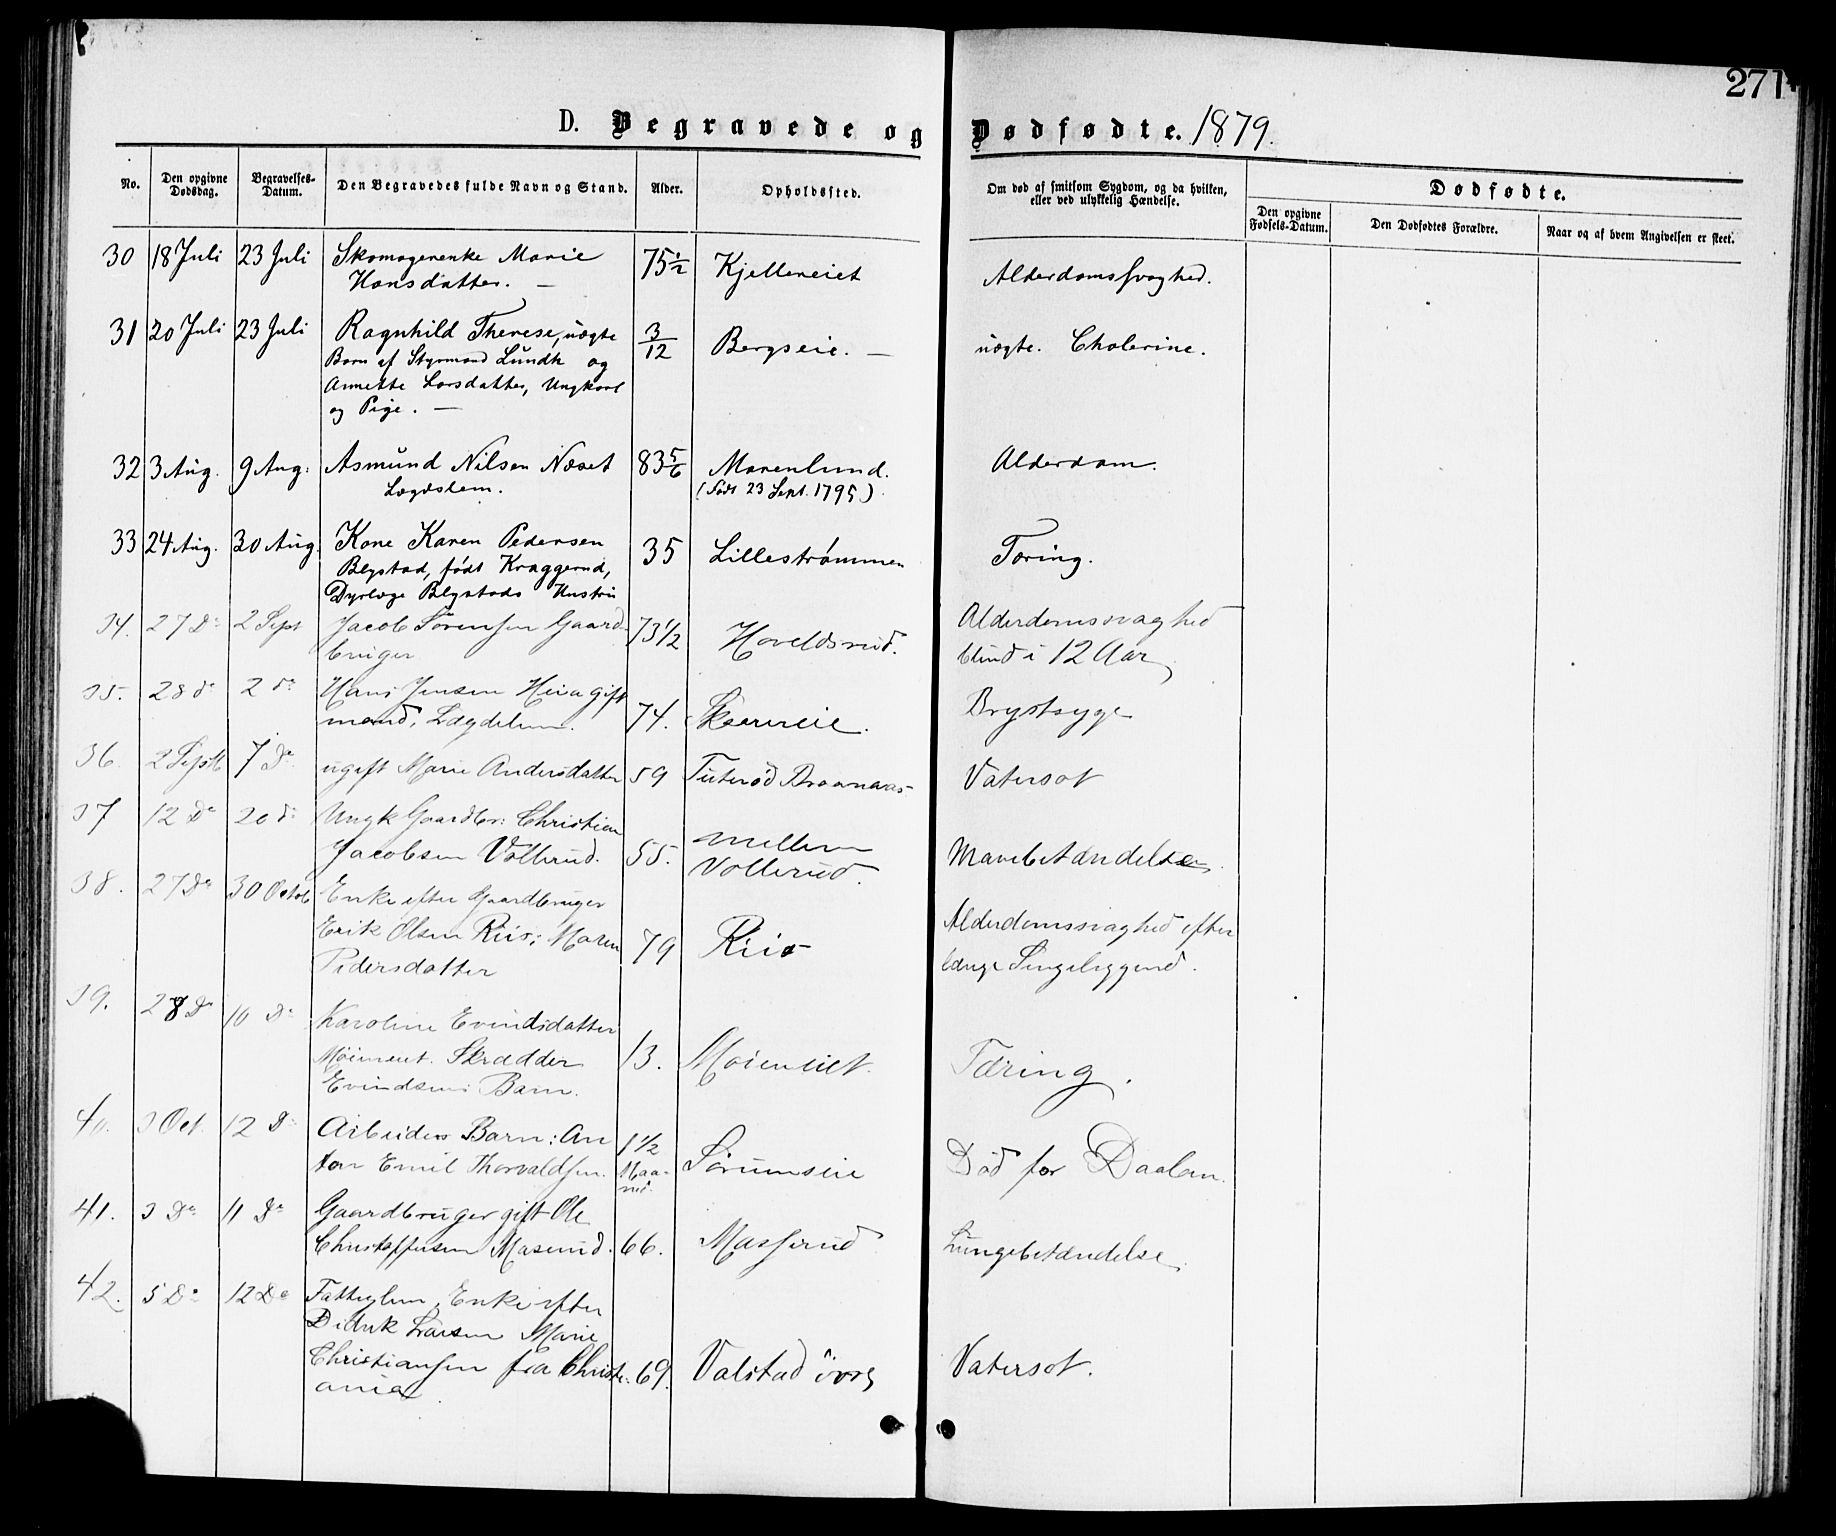 271
D. Begravede og Dødfødte. 1879.
No.
Den opgivne Dødsdag.
Begravelses-Datum.
Den Begravedes fulde Navn og Stand.
Alder.
Opholdssted.
Om død af smitsom Sygdom, og da hvilken,
eller ved ulykkelig Hændelse.
Dødfødte.
Den opgivne Fødsels-Datum.
Den Dødfødtes Forældre.
Naar og af hvem Angivelsen er skeet.
30 18 Juli 23 Juli Skomagerenke Marie 75 1/2 Kjellereiet Alderdomssvaghed.
Hansdatter. —
31 20 Juli 23 Juli Ragnhild Therese, uægte 3/12 Bergseie. — uægte. Cholerine.
Barn af Styrmand Lundh og
Annette Larsdatter, Ungkarl
og Pige. —
32 3 Aug. 9 Aug. Asmund Nilsen Næset 83 5/6 Marenlund. Alderdom.
Lægdslem. (født 23 Sept. 1795)
33 24 Aug. 30 Aug. Kone Karen Pedersen 35 Lillestrømmen Tæring.
Blystad, født Kraggerud,
Dyrlæge Blystads Hustru
34. 27 Do 2 Sept Jacob Sørensen Gaard- 73 1/2 Hoveldsrud. Alderdomssvaghed
bruger blind i 12 Aar
35. 28 do 2 do Hans Jensen gift
mand, Lægdelem. 74. Skeereie. Brystsyge
36. 2 Septb 7 Do ugift Marie Andersdatter 59 Tuterød Braanaas Vatersot
37 12 Do 20 do Ungk Gaardbr: Christian
Jacobsen Vollerud. 55. mellem Vollerud. Mavebetændelse.
38. 27 Do 30 Octob Enke efter Gaardbruger
Erik Olsen Riis; Maren 79 Riis Alderdomssvaghed efter
Pedersdatter længe Sengeliggend.
39. 28 Do 10 Do Karoline Evindsdatter
Møieneiet. Skrædder 13. Møieneiet. Tæring.
Evindsens Barn.
40. 3 Oct. 12 Do Arbeiders Barn: An
ton Emil Thorvaldsen. 1 1/2 Maa- ned. Sørumseie Død før Daaben.
41. 3 Do 11 Do Gaardbruger gift Ole
Christophersen Maserud. 66. Masserud Lungebetændelse.
42. 5 Do 12 Do Fattiglem, Enke efter
Didrik Larsen Marie
Christiansen fra Christi- 69. Valstad øvre Vatersot.
ania.